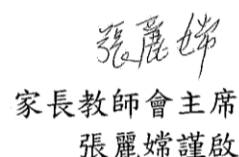 張麗嫦
家長教師會主席
張麗嫦謹啟